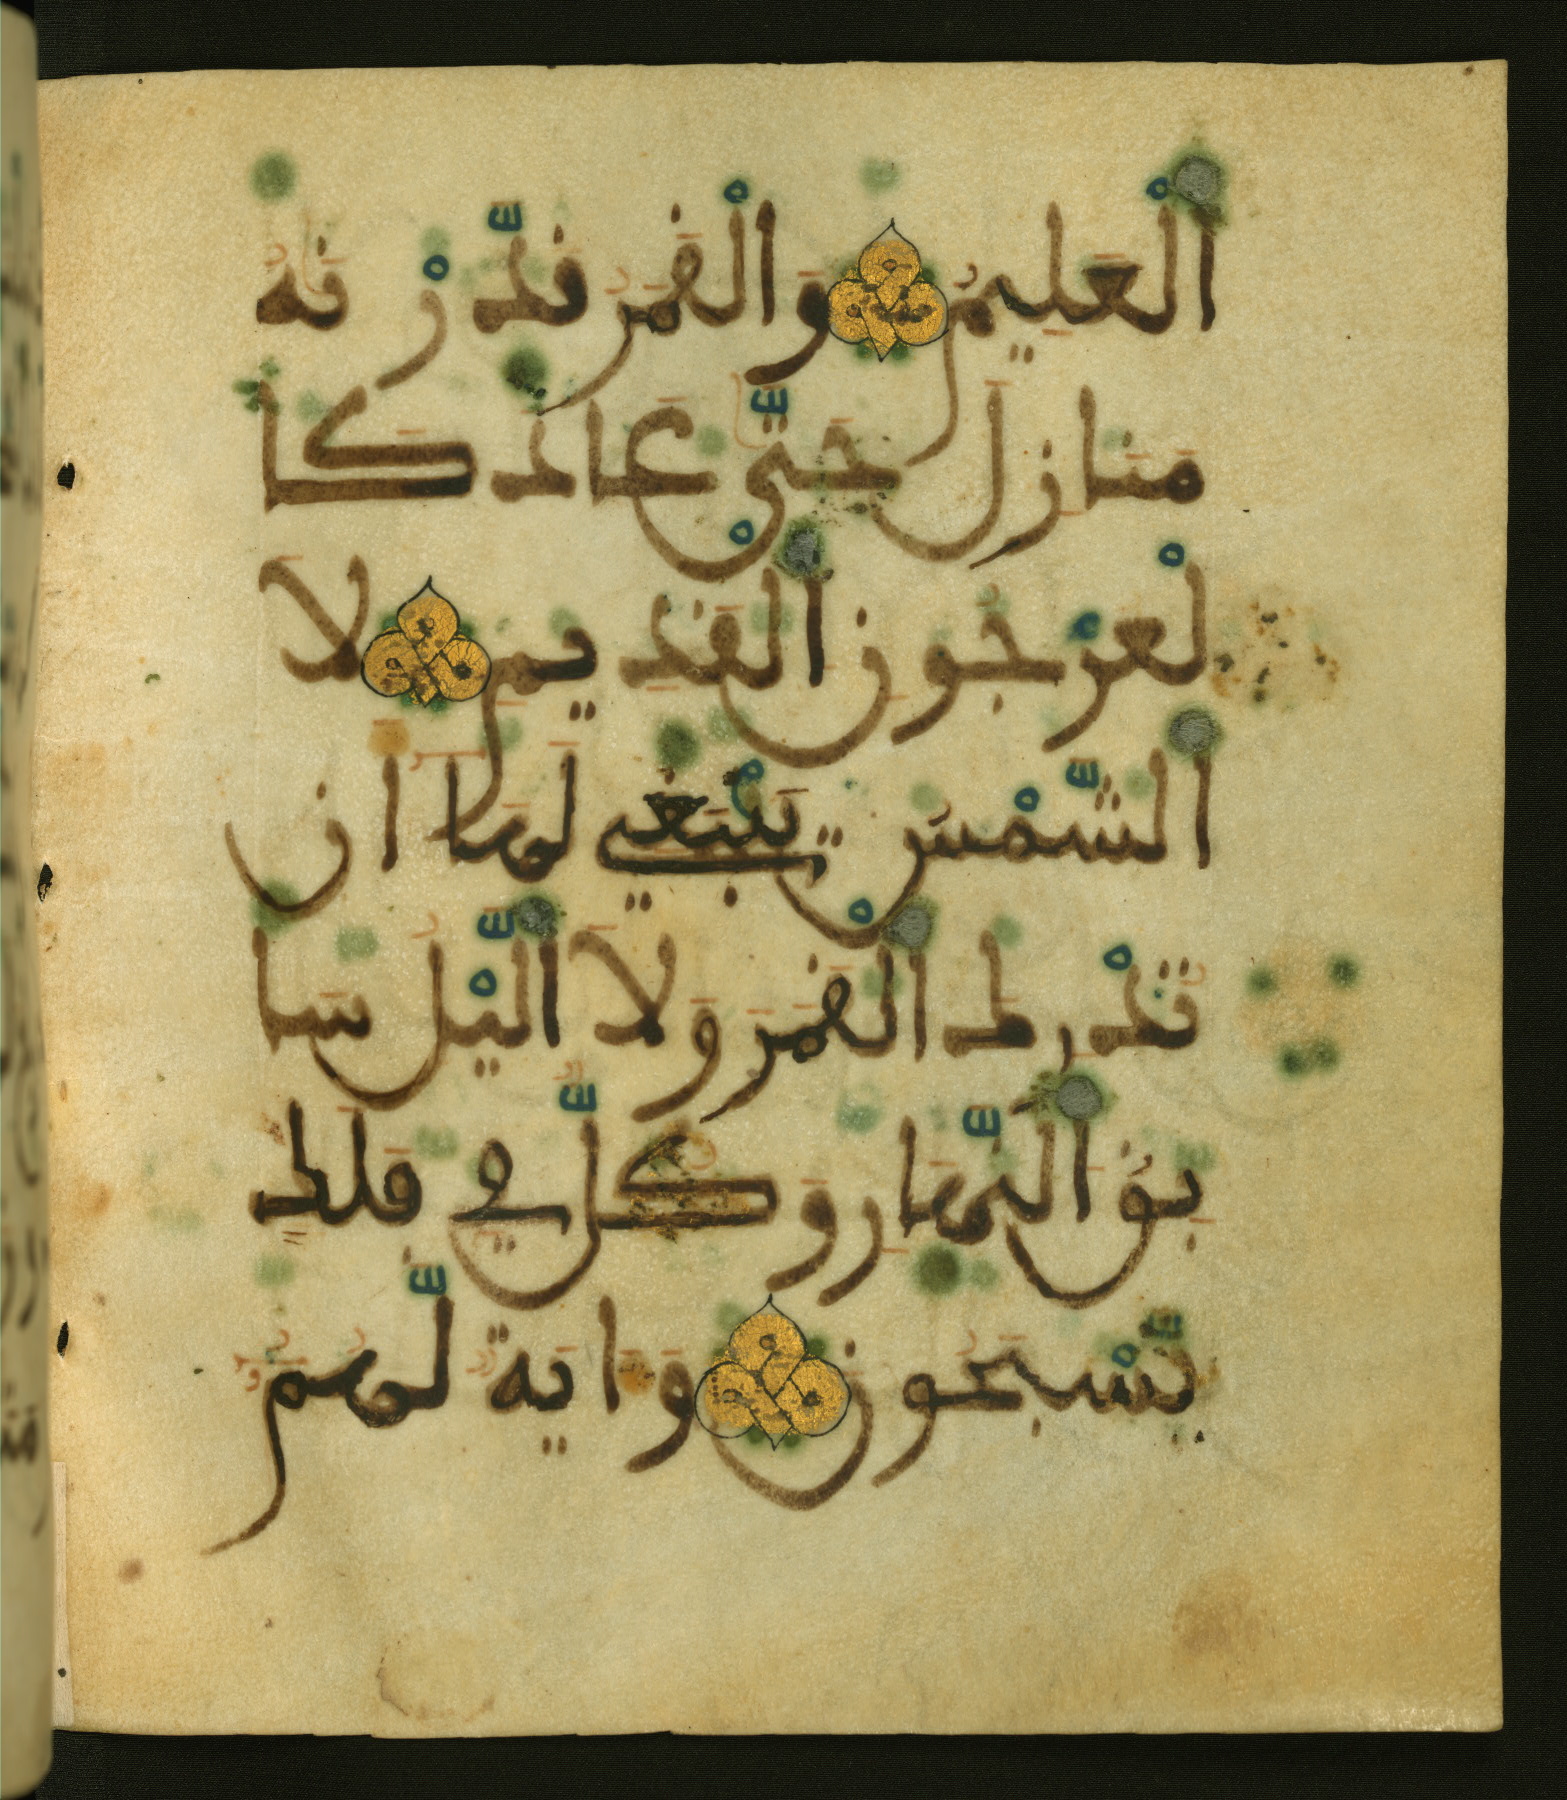 الْعَلِيمِ وَالْقَمَرُ قَدَّرْنَهُ
مَنَازِلَ حَتَّى عَادَ كَا
لْعُرْجُونِ الْقَدِيمِ لَا
الشَّمْسُ يَنْبَغِي لَهَا أَن
تُدْرِكَ الْقَمَرَ وَلَا الَّيْلُ سَا
بِقُ النَّهَارِ وَكُلٌّ فِي فَلَكٍ
يَّسْبَحُونَ وَايَةٌ لَّهُمُ